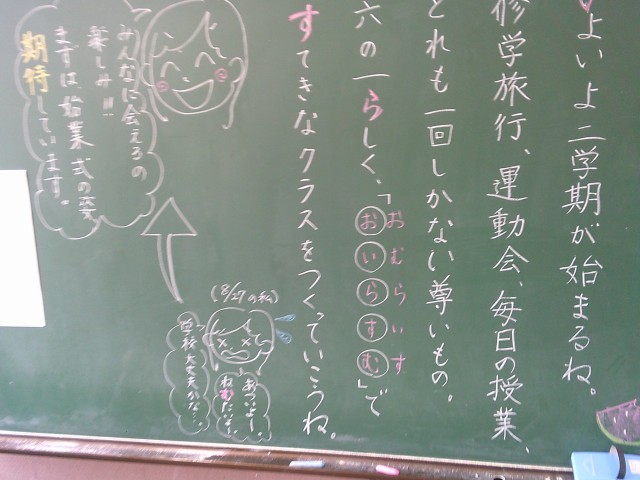 よいよ二学期が始まるね。
修学旅行、運動会、毎日の授業、
どれも一回しかない尊いもの。
六の一らしく、「おいらすむ」で
おむらいす
すてきなクラスをつくっていこうね。
(8/29の私)
あついよー。
ねむたいよ。
学校大丈夫かな…
みんなに会えるの
楽しみ!!
まずは、始業式の姿
期待しています。